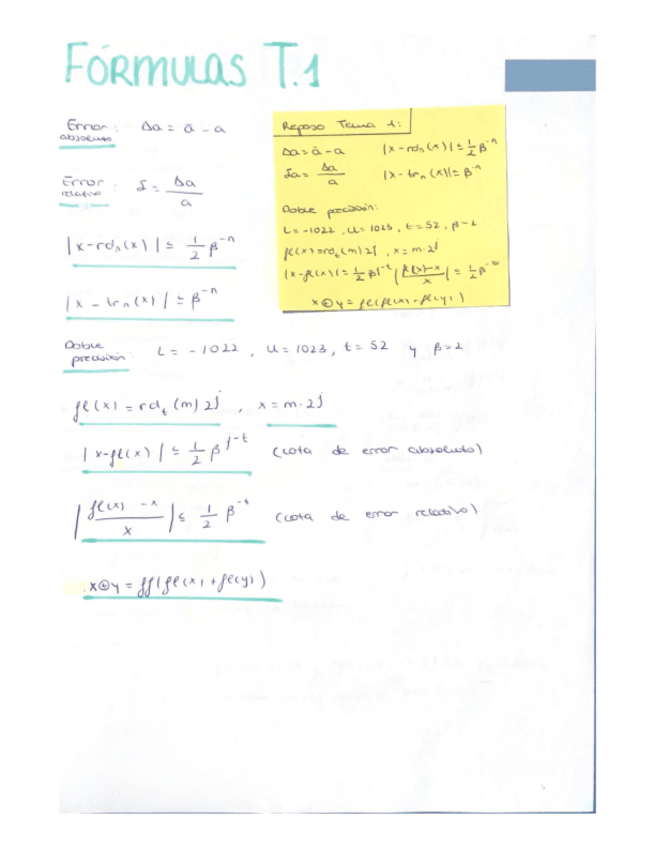 FÓRMULAS T.1
Error absoluto : Δa = ā - a
Error relativo : δ = Δa / a
|x - rdₙ(x)| ≤ 1/2 β⁻ⁿ
|x - trₙ(x)| ≤ β⁻ⁿ
Doble precisión: L = -1022 , U = 1023 , t = 52 y β = 2
fl(x) = rdₜ(m) 2ʲ , x = m·2ʲ
|x - fl(x)| ≤ 1/2 βʲ⁻ᵗ (cota de error absoluto)
|(fl(x) - x) / x| ≤ 1/2 β⁻ᵗ (cota de error relativo)
x⊕y = ff(fl(x) + fl(y))
Repaso Tema 1:
Δa = ā - a |x - rdₙ(x)| ≤ 1/2 β⁻ⁿ
δa = Δa / a |x - trₙ(x)| ≤ β⁻ⁿ
Doble precisión:
L = -1022 , U = 1023 , t = 52 , β = 2
fl(x) = rdₜ(m) 2ʲ , x = m·2ʲ
|x - fl(x)| ≤ 1/2 βʲ⁻ᵗ |(fl(x) - x) / x| ≤ 1/2 β⁻ᵗ
x⊕y = fl(fl(x) + fl(y))